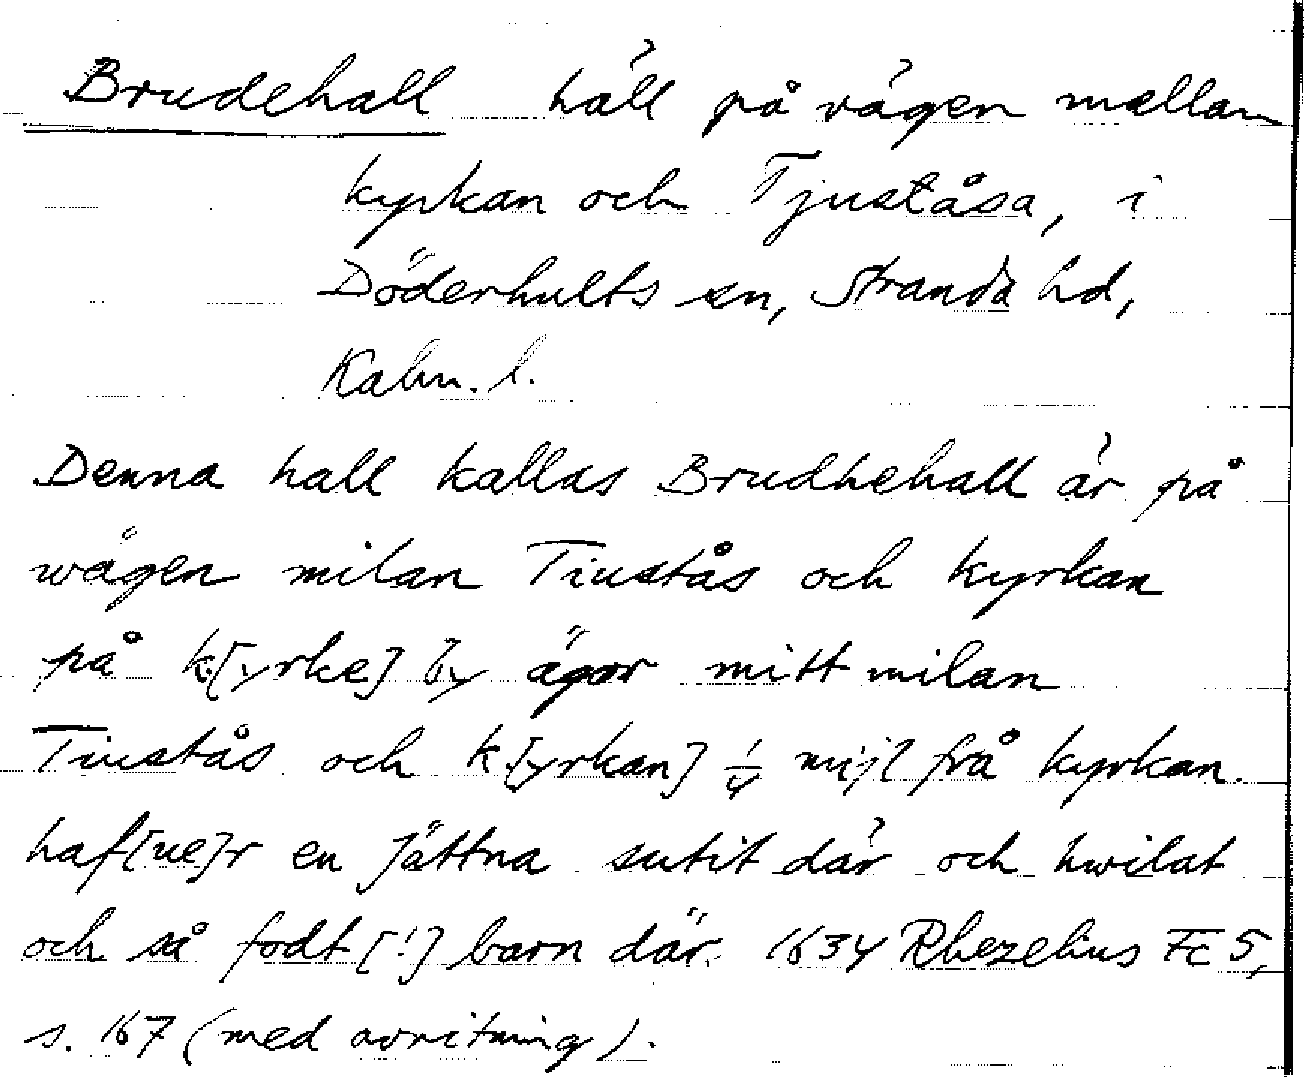 Brudehall häll på vägen mellan
kyrkan och Tjuståsa, i
Döderhults sn, Stranda hd,
Kalm. l.
Denna hall kallas Brudhehall är på
wägen milan Tiustås och kyrkan
på k[yrke] by ägor mitt milan
Tiustås och k[yrkan] ¼ mijl frå kyrkan.
haf[ue]r en Jättna sutit där och hwilat
och så fodt [!] barn där. 1634 Rhezelius Fc 5,
s. 167 (med avritning).